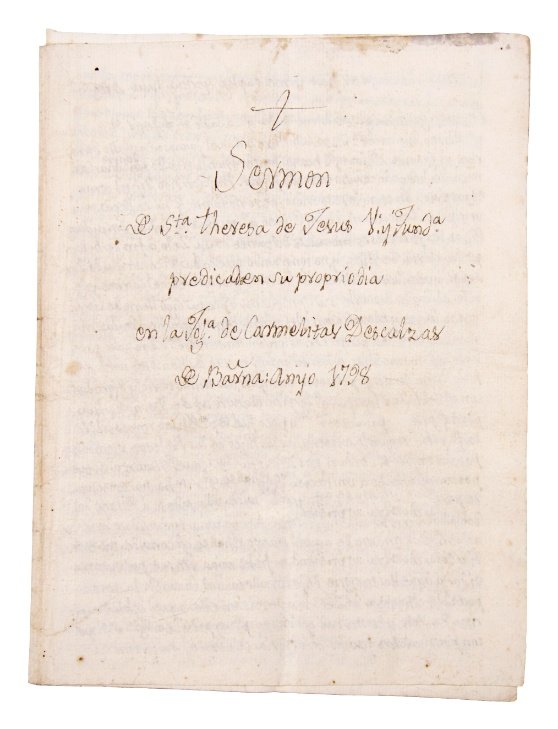 Sermon
de Sta. Theresa de Jesus V. y Funda.
predicado en su proprio dia
en la Iga. de Carmelitas Descalzas
de Barna: Anÿo 1798